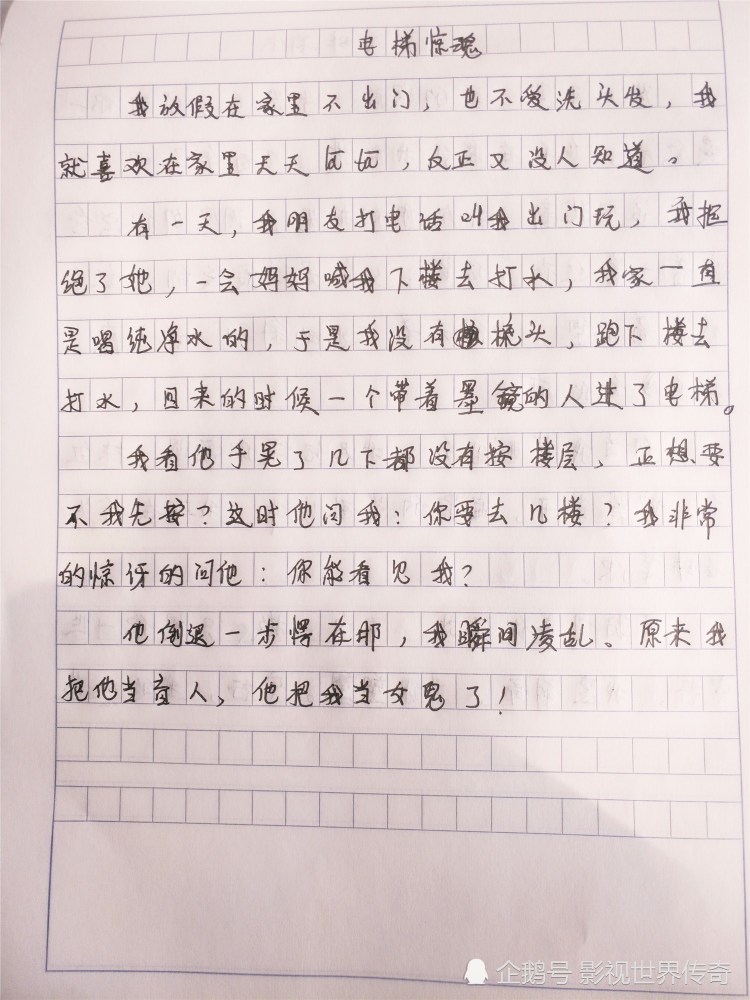 电梯惊魂
我放假在家里不出门，也不爱洗头发，我
就喜欢在家里天天玩，反正又没人知道。
有一天，我朋友打电话叫我出门玩，我拒
绝了她，一会妈妈喊我下楼去打水，我家一直
是喝纯净水的，于是我没有梳头，跑下楼去
打水，回来的时候一个带着墨镜的人进了电梯。
我看他手晃了几下都没有按楼层、正想要
不我先按？这时他问我：你要去几楼？我非常
的惊讶的问他：你能看见我？
他倒退一步愣在那，我瞬间凌乱、原来我
把他当盲人，他把我当女鬼了！
企鹅号 影视世界传奇